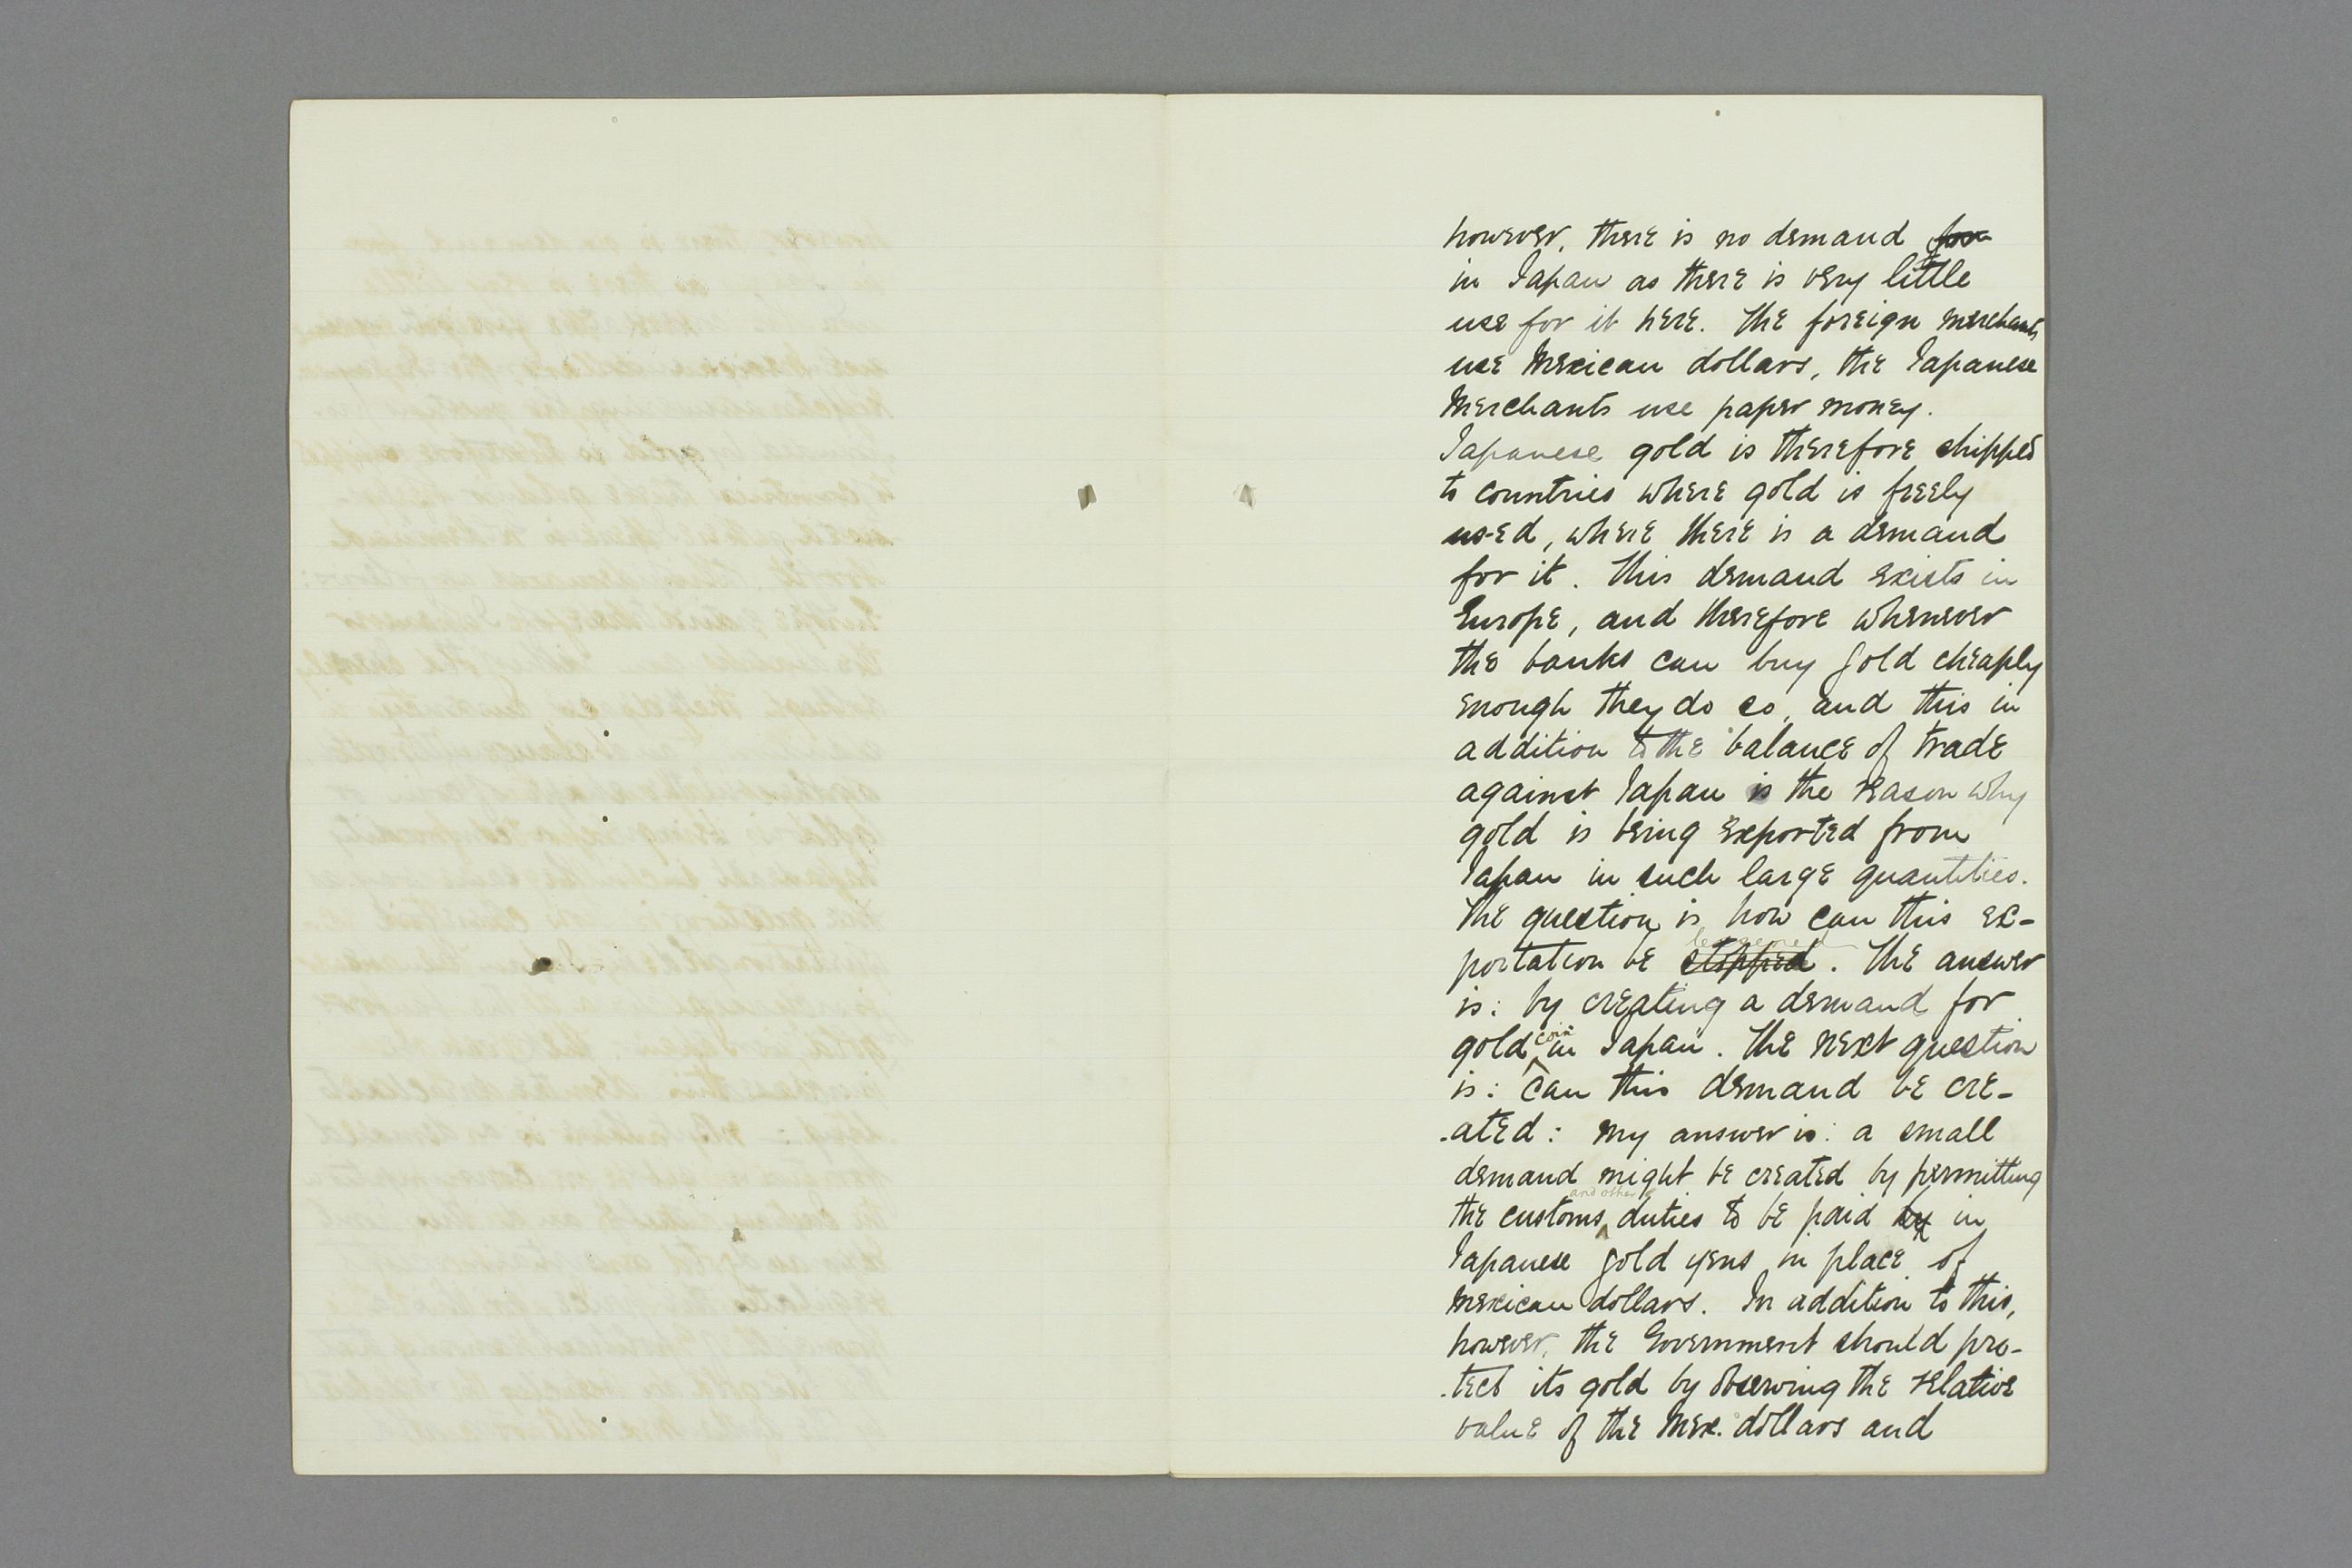 however, there is no demand for
in Japan as there is very little
use for it here. The foreign merchants
use Mexican dollars, the Japanese
Merchants use paper money.
Japanese gold is therefore shipped
to countries where gold is freely
used, where there is a demand
for it. This demand exists in
Europe, and therefore whenever
the banks can buy gold cheaply
enough they do so, and this in
addition to the balance of trade
against Japan is the reason why
gold is being exported from
Japan in such large quantities.
The question is how can this ex-
lessened
portation be stopped. The answer
is: by creating a demand for
gold coin in Japan. The next question
is: can this demand be cre-
-ated: my answer is: a small
demand might be created by permitting
and other
the customs duties to be paid by in
Japanese gold yens in place of
Mexican dollars. In addition to this,
however, the Government should pro-
-tect its gold by observing the relative
value of the Mex. dollars and